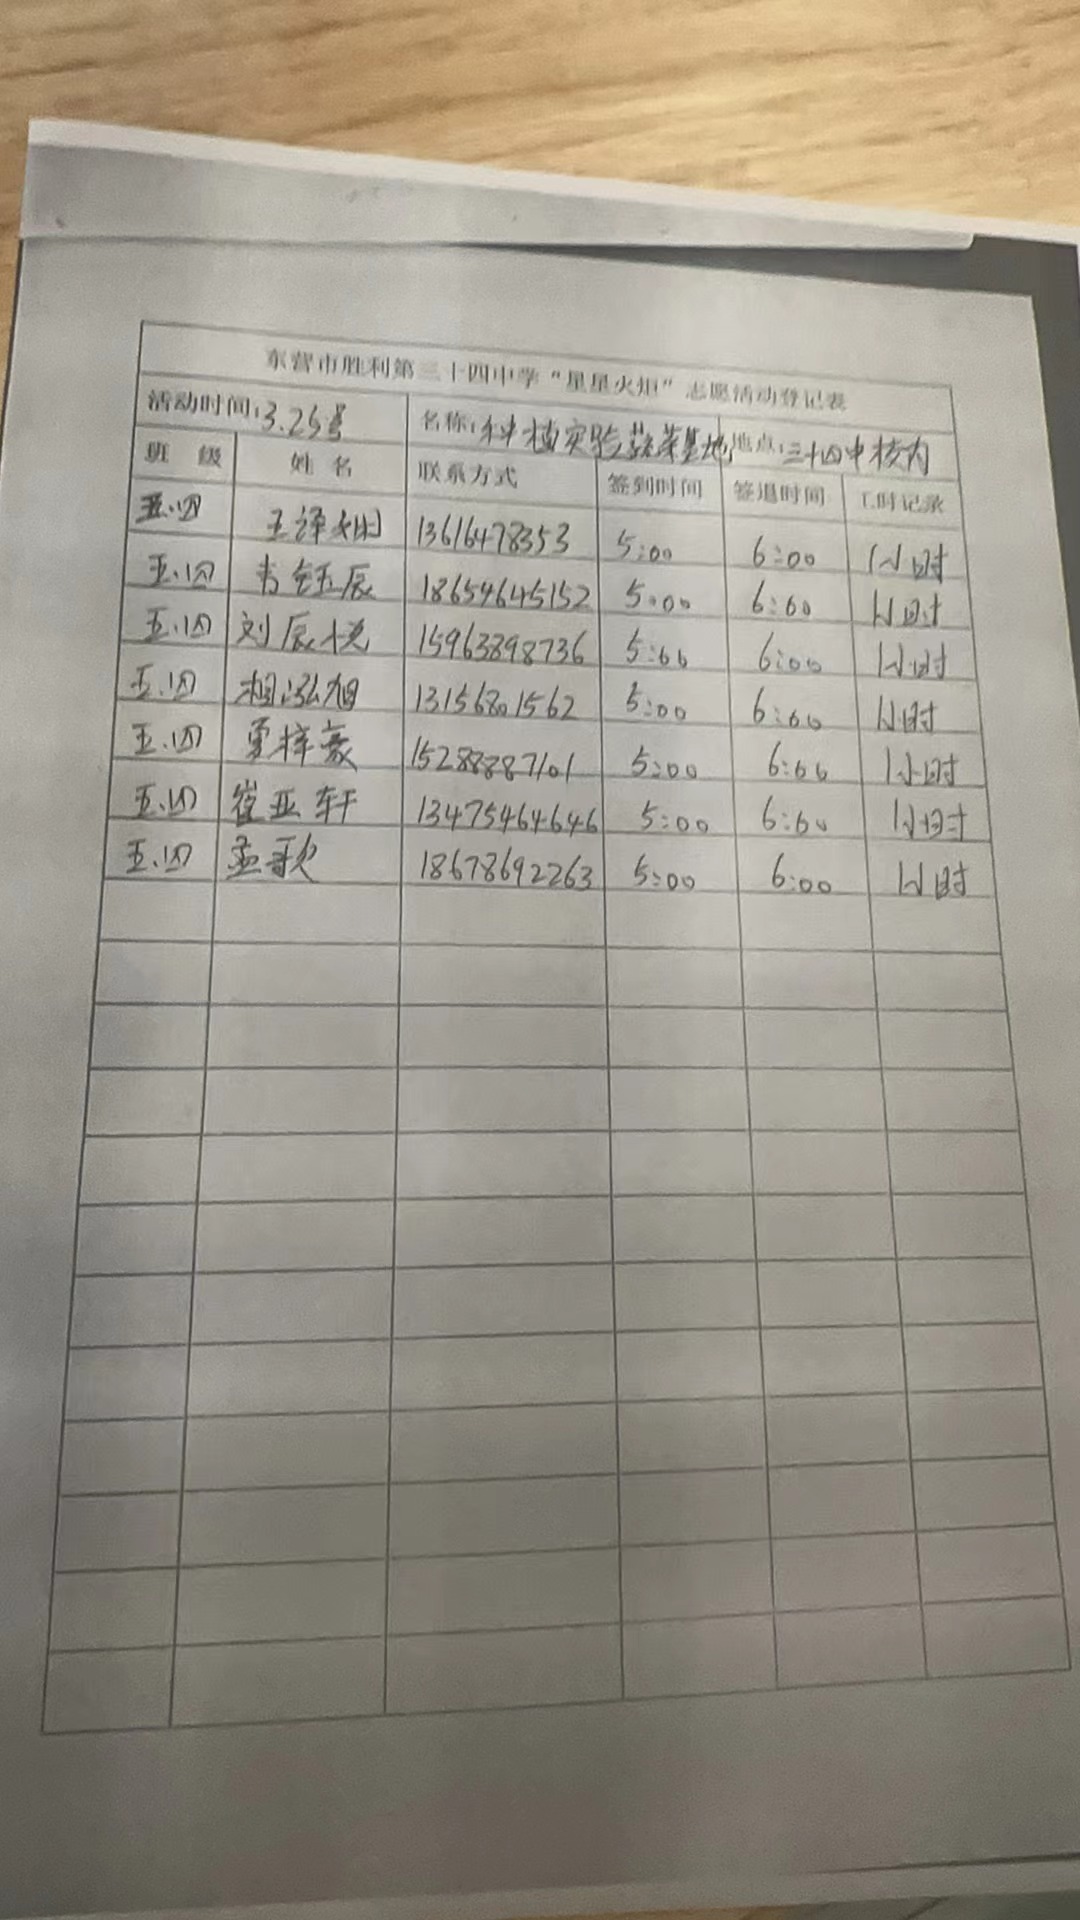 东营市胜利第三十四中学“星星火炬”志愿活动登记表
活动时间：3.25号 名称：种植实验蔬菜基地 地点：三十四中校内
班 级 姓 名 联系方式 签到时间 签退时间 工时记录
五.四 王泽娴 13616478353 5:00 6:00 1小时
五.四 钰辰 18654645152 5:00 6:00 1小时
五.四 刘辰悦 15963898736 5:00 6:00 1小时
五.四 相泓旭 13156801562 5:00 6:00 1小时
五.四 梓豪 15288887101 5:00 6:00 1小时
五.四 崔亚轩 13475464646 5:00 6:00 1小时
五.四 孟歌 18678692263 5:00 6:00 1小时